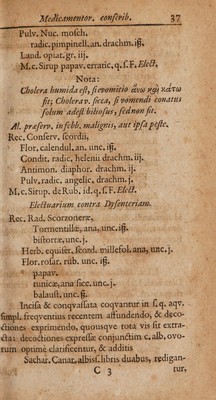 Medicamentor. conscrib. 37
Pulv. Nuc. mosch.
radic. pimpinell. an. drachm. iß.
Laud. opiat. gr. iij.
M. c. Sirup papav. erratic. q. s. F. Elect.
Nota:
Cholera humida est, si evomitio ἄνω καὶ κάτω
fit; Cholera v. sicca, si vomendi conatus
solum adest biliosus, sed non fit.
Al. præserv. in febb. malignis, aut ipsa peste.
Rec. Conserv. scordii,
Flor. calendul. an. unc. iß.
Condit. radic. helenii drachm. iij.
Antimon. diaphor. drachm. ij.
Pulv. radic. angelic. drachm. j.
M. c. Sirup. de Rub. id. q. s. F. Elect.
Electuarium contra Dysenteriam.
Rec. Rad. Scorzoneræ,
Tormentillæ, ana, unc. iß.
bistortæ unc. j.
Herb. equiset. summ. millefol. ana, unc. j.
Flor. rosar. rub. unc. iß.
papav.
tunicæ, ana sice. unc. j.
balaust. unc. ß.
Incisa & conquassata coqvantur in s. q. aqv.
simpl. freqventius recentem affundendo, & deco-
ctiones exprimendo, quousqve tota vis sit extra-
cta: decoctiones expressæ conjunctim c. alb. ovo-
rum optime clarificentur, & additis
Sachar. Canar. albiss. libris duabus, redigan-
C 3 tur,